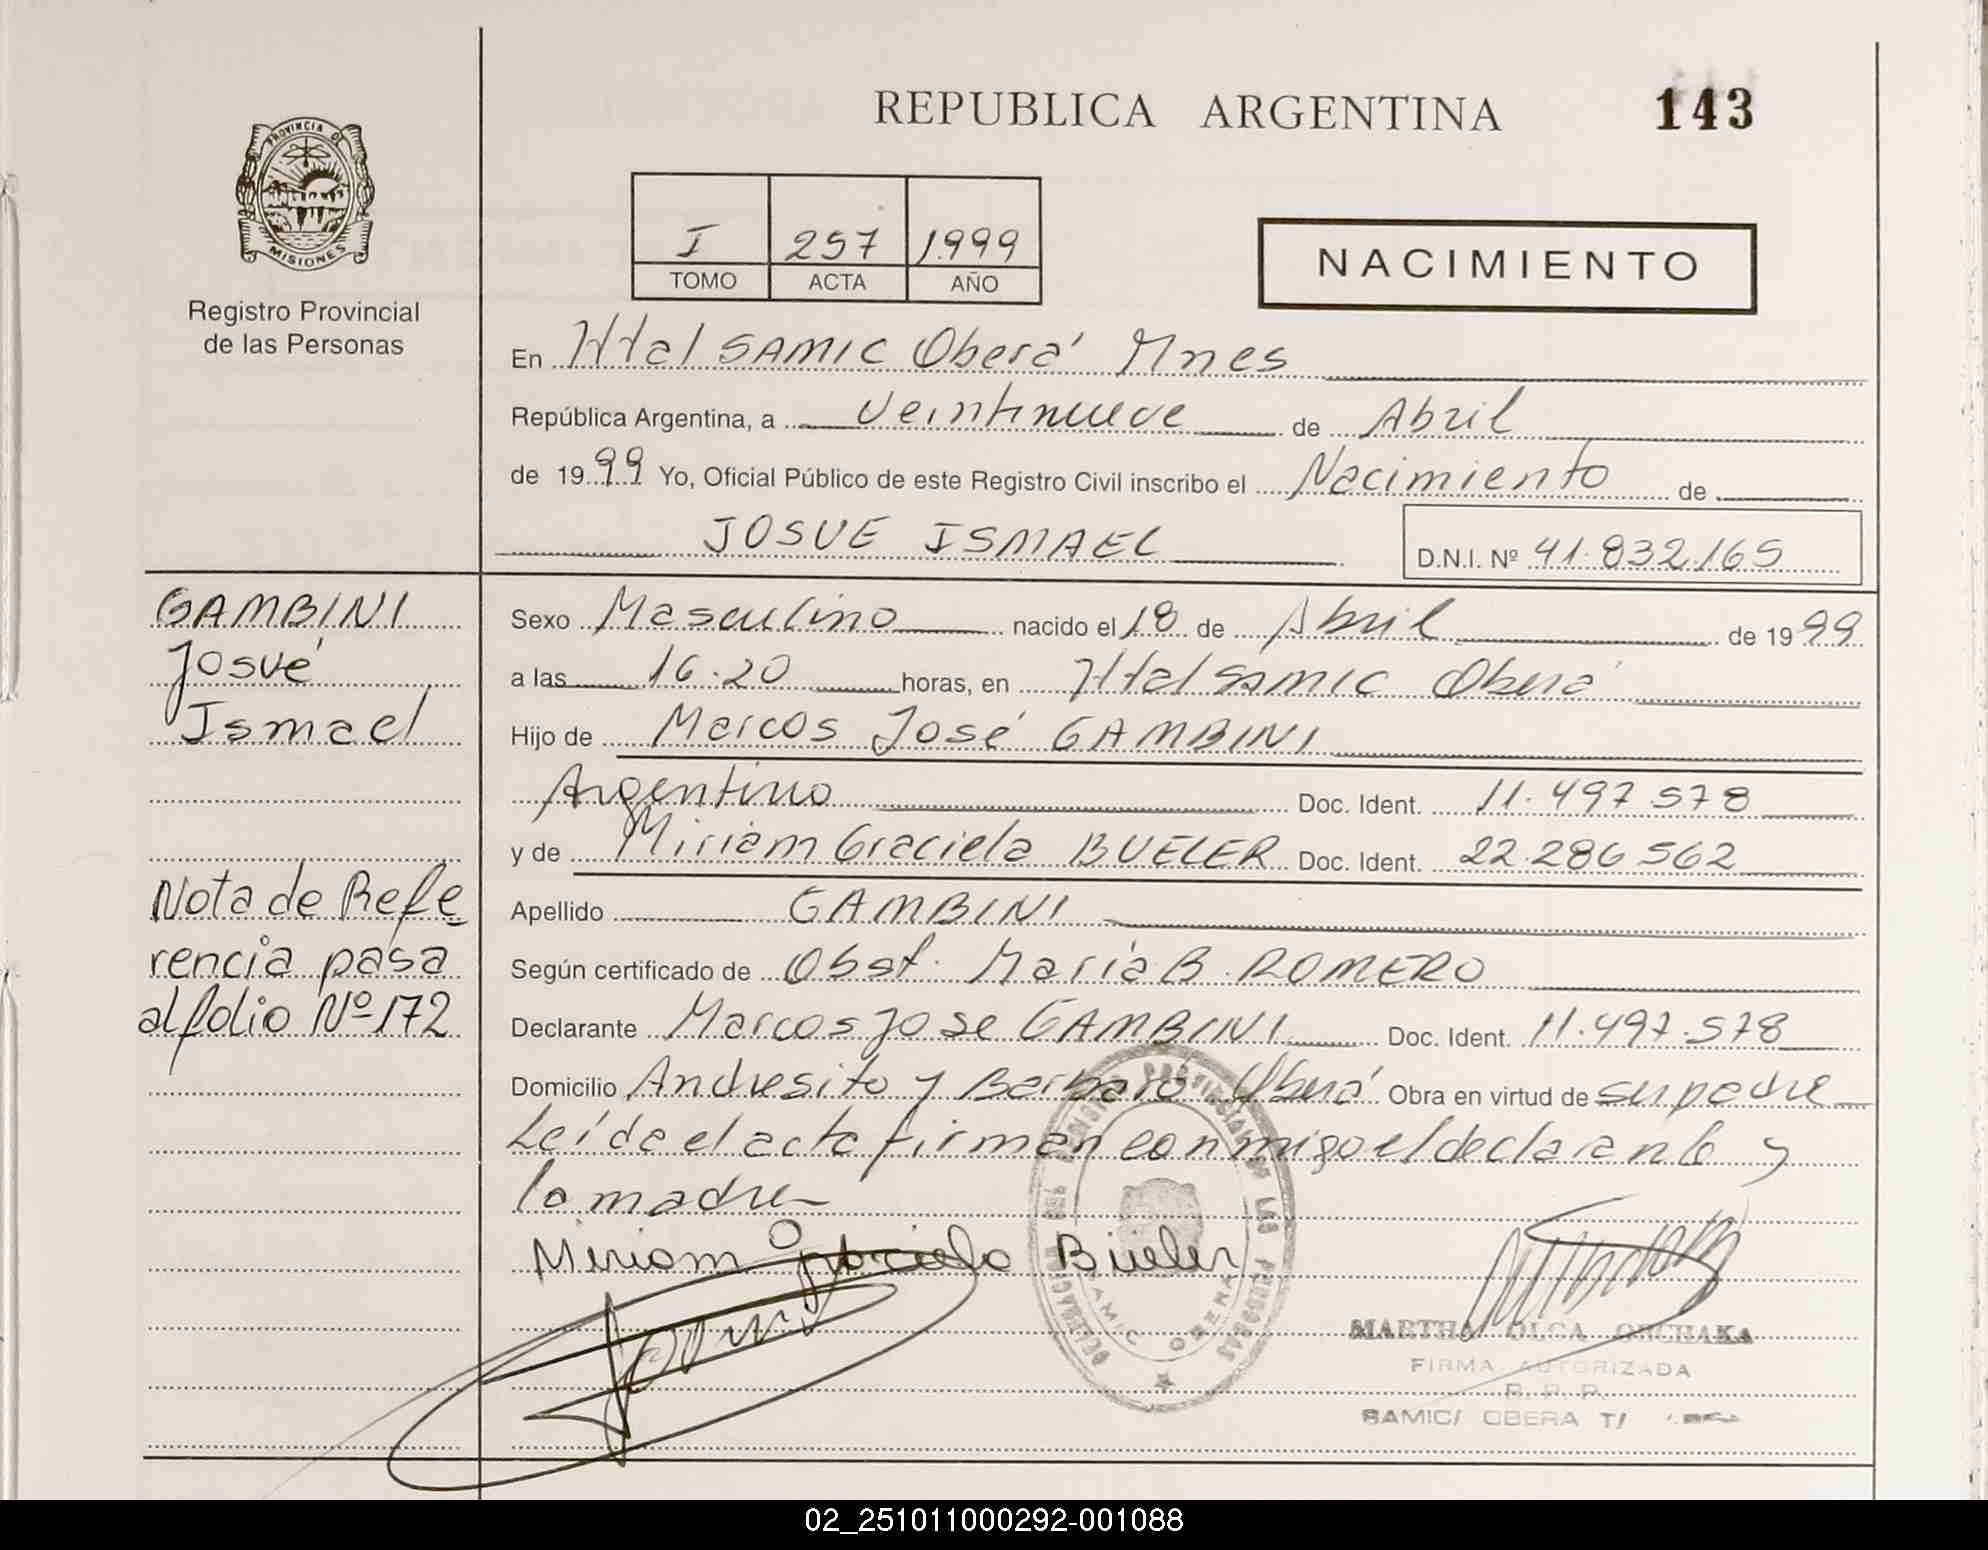 REPUBLICA ARGENTINA
143
PROVINCIA DE
MISIONES
Registro Provincial
de las Personas
I 257 1.999
TOMO ACTA AÑO
NACIMIENTO
En Htal SAMIC Oberá Mnes
República Argentina, a Veintinueve de Abril
de 1999 Yo, Oficial Público de este Registro Civil inscribo el Nacimiento de
JOSUE ISMAEL
D.N.I. Nº 41.832.165
GAMBINI
Josué
Ismael
Nota de Refe
rencia pasa
al folio Nº 172
Sexo Masculino nacido el 18 de Abril de 1999
a las 16.20 horas, en Htal SAMIC Oberá
Hijo de Marcos José GAMBINI
Argentino Doc. Ident. 11.497.578
y de Miriam Graciela BUELER Doc. Ident. 22.286.562
Apellido GAMBINI
Según certificado de Obst. María B. ROMERO
Declarante Marcos Jose GAMBINI Doc. Ident. 11.497.578
Domicilio Andresito y Barbaró Oberá Obra en virtud de su padre
Leída el acta firman conmigo el declarante y
la madre
Miriam Graciela Büeler
DELEGACION DEL REGISTRO PROVINCIAL DE LAS PERSONAS
SAMIC OBERA
MARTHA OLGA
FIRMA AUTORIZADA
R. P. P.
SAMIC/ OBERA
02_251011000292-001088